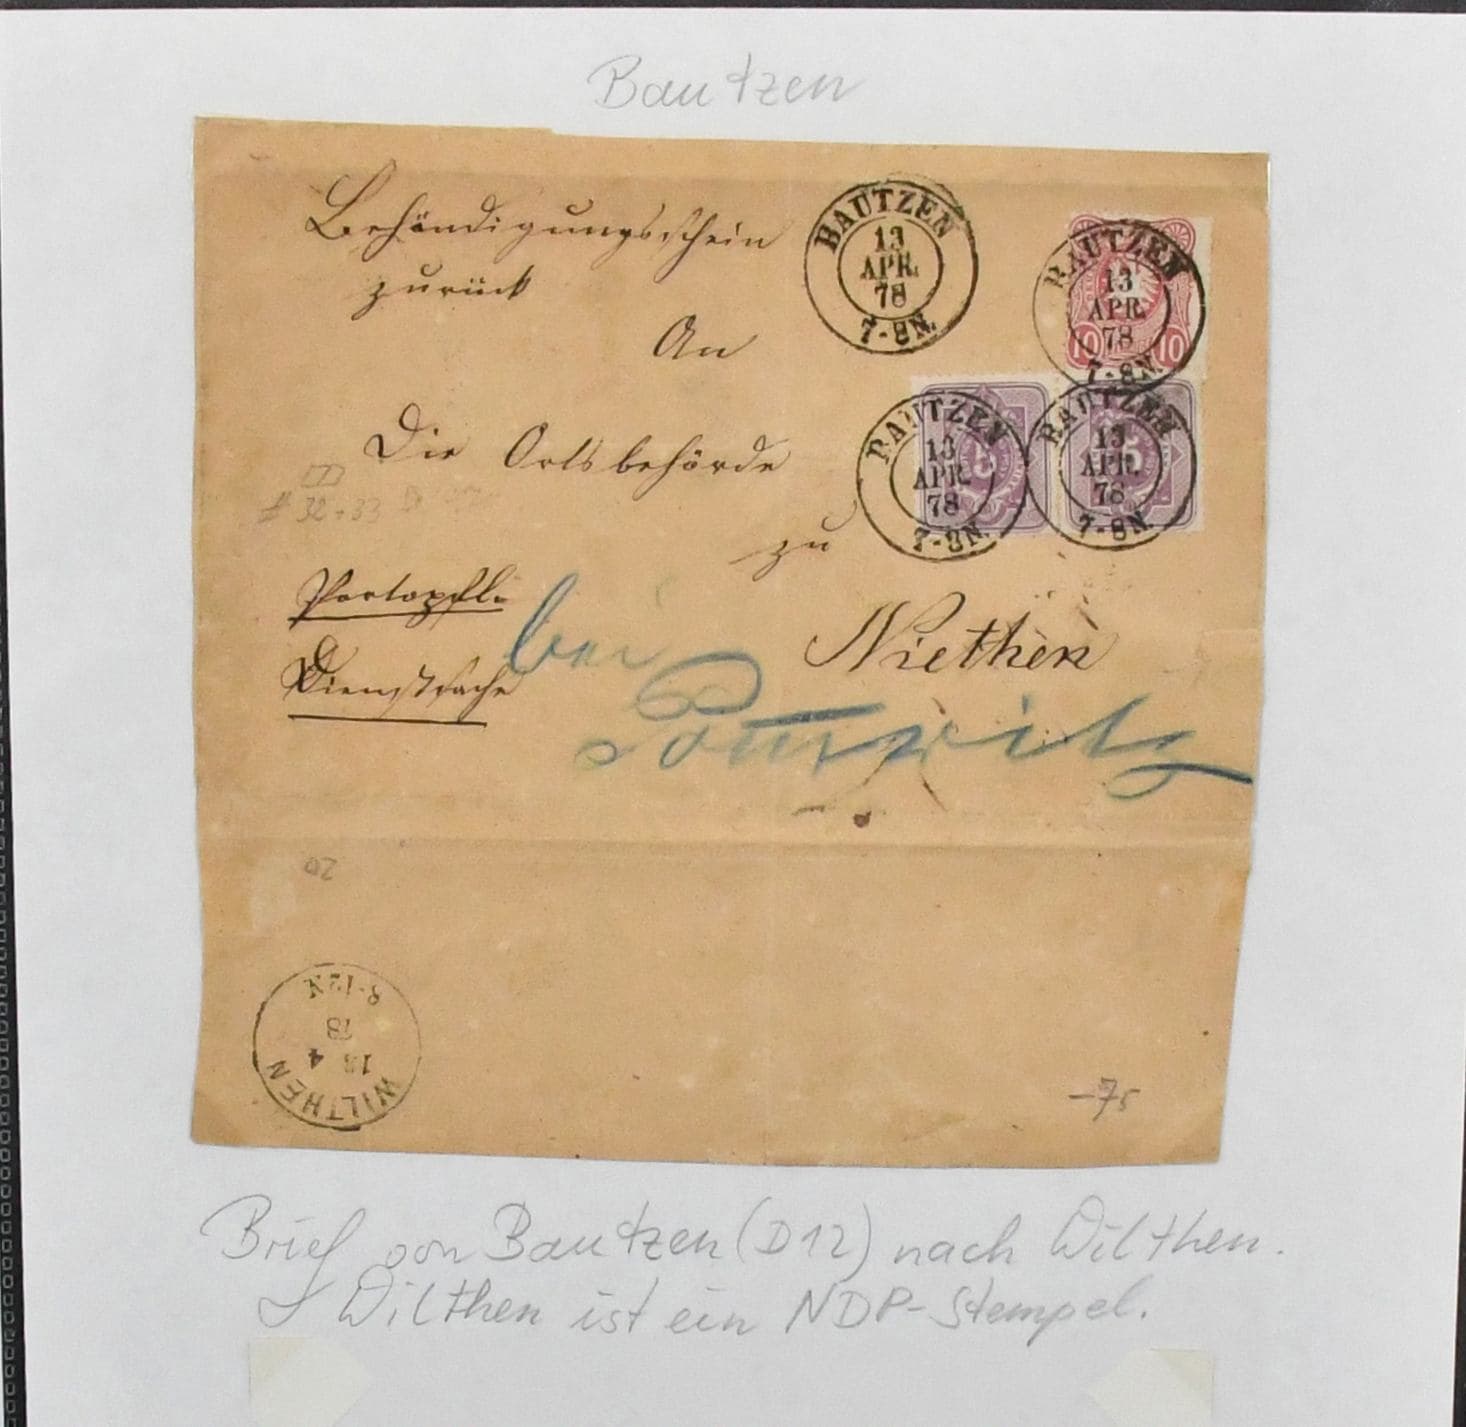 Bautzen
Behändigungsschein
zurück
An
Die Ortsbehörde
zu
Niethen
Portopfl.
Dienstsache
bei
Pommritz
BAUTZEN
13
APR.
78
7-8N.
BAUTZEN
13
APR.
78
7-8N.
10 10
BAUTZEN
13
APR.
78
7-8N.
5
BAUTZEN
13
APR.
78
7-8N.
5
# 32+33
20
WILTHEN
13 4
78
8-12N
-75
Brief von Bautzen (D12) nach Wilthen.
Wilthen ist ein NDP-Stempel.